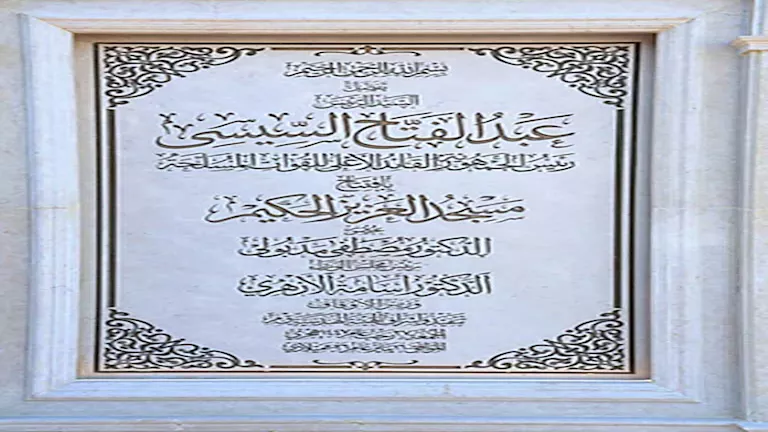 بسم الله الرحمن الرحيم
تفضل
السيد الرئيس
عبد الفتاح السيسي
رئيس الجمهورية القائد الأعلى للقوات المسلحة
بافتتاح
مسجد العزيز الحكيم
بحضور
الدكتور مصطفى مدبولي
رئيس مجلس الوزراء
الدكتور أسامة الأزهري
وزير الأوقاف